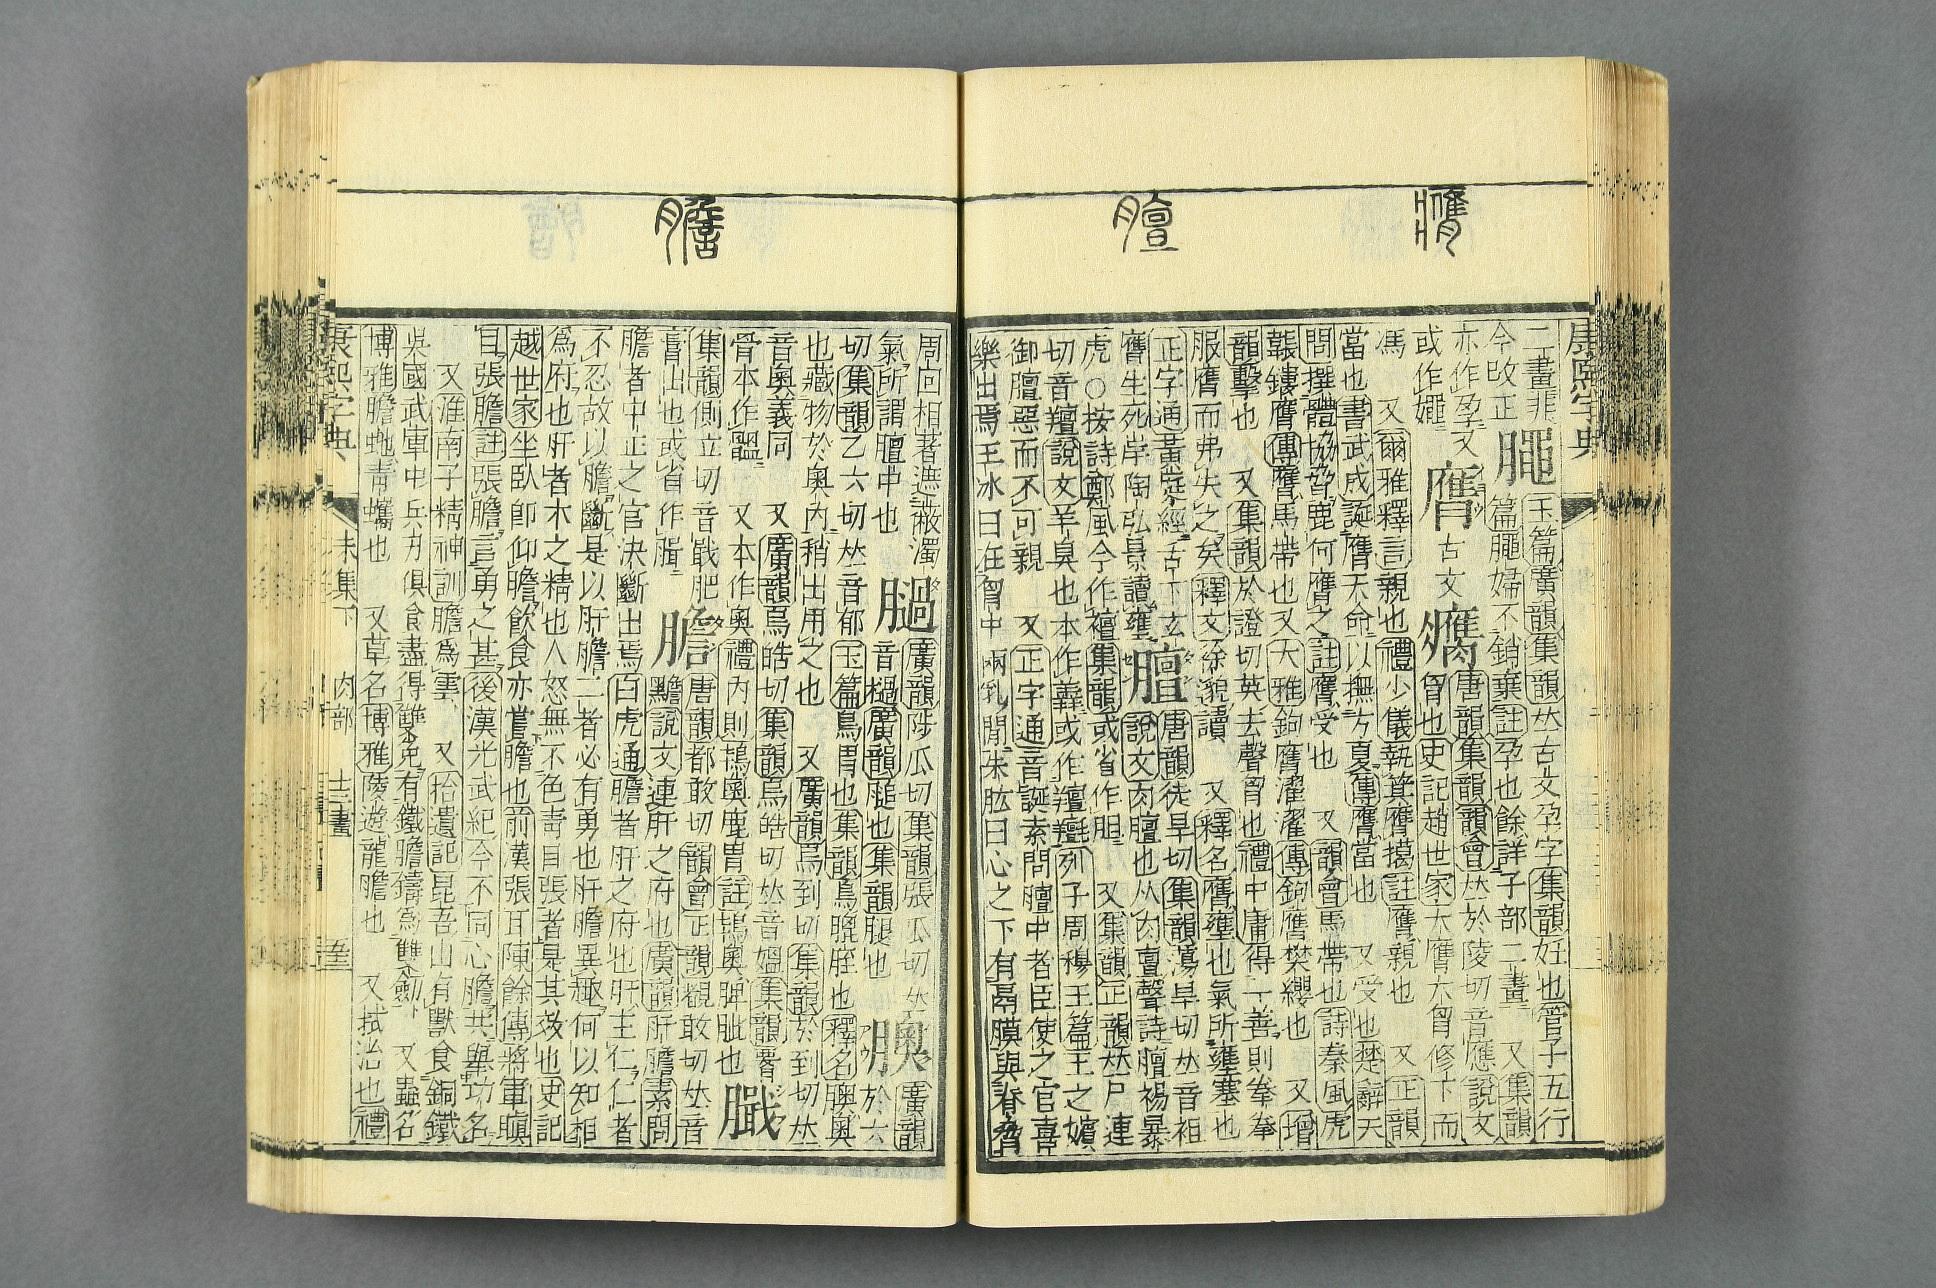 康熙字典
二畫非
今攺正
䐼
玉篇廣韻集韻𠀤古文孕字集韻妊也管子五行
篇䐼婦不銷棄註孕也餘詳子部二畫 又集韻
亦作孕又
或作㜁
膺
古文
𤸰
唐韻集韻韻會𠀤於陵切音應說文
胷也史記趙世家大膺大胷修下而
馮 又爾雅釋言親也禮少儀執箕膺擖註膺親也 又正韻
當也書武成誕膺天命以撫方夏傳膺當也 又受也楚辭天
問撰體協脅鹿何膺之註膺受也 又韻會馬帶也詩秦風虎
韔鏤膺傳膺馬帶也又大雅鉤膺濯濯傳鉤膺樊纓也 又增
韻擊也 又集韻於證切英去聲胷也禮中庸得一善則拳拳
服膺而弗失之矣釋文徐貌讀 又釋名膺壅也氣所壅塞也
正字通黃庭經古下玄
膺生死岸陶弘景讀壅
膻
唐韻徒旱切集韻蕩旱切𠀤音袒
說文肉膻也从肉亶聲詩膻裼暴
虎○按詩鄭風今作襢集韻或省作胆 又集韻正韻𠀤尸連
切音羶說文羊臭也本作羴或作羶𦏺列子周穆王篇王之嬪
御膻惡而不可親 又正字通音誕素問膻中者臣使之官喜
樂出焉王冰曰在胷中兩乳閒朱肱曰心之下有鬲膜與脊脅
周回相著遮蔽濁
氣所謂膻中也
膼
廣韻陟瓜切集韻張瓜切𠀤
音檛廣韻腿也集韻腿也
膷
廣韻
於六
切集韻乙六切𠀤音郁玉篇鳥胃也集韻鳥膍胵也釋名膷奧
也藏物於奧內稍出用之也 又廣韻烏到切集韻於到切𠀤
音奥義同 又廣韻烏皓切集韻烏皓切𠀤音媼集韻䐿
骨本作䐿 又本作奧禮內則鴇奧鹿胃註鴇奧脾胵也
䐶
集韻側立切音戢肥
膏出也或省作䐕
膽
唐韻都敢切韻會正韻覩敢切𠀤音
黵說文連肝之府也廣韻肝膽素問
膽者中正之官決斷出焉白虎通膽者肝之府也肝主仁仁者
不忍故以膽斷是以肝膽二者必有勇也肝膽異趣何以知相
爲府也肝者木之精也人怒無不色靑目張者是其效也史記
越世家坐臥卽仰膽飲食亦嘗膽也前漢張耳陳餘傳將軍瞋
目張膽註張膽言勇之甚後漢光武紀今不同心膽共舉功名
 又淮南子精神訓膽爲雲 又拾遺記昆吾山有獸食銅鐵
吳國武庫中兵刃俱食盡得雙兔有鐵膽鑄爲雙劒 又蟲名
博雅膽虵靑蠵也 又草名博雅陵遊龍膽也 又拭治也禮
康熙字典
未集下
肉部
十三畫